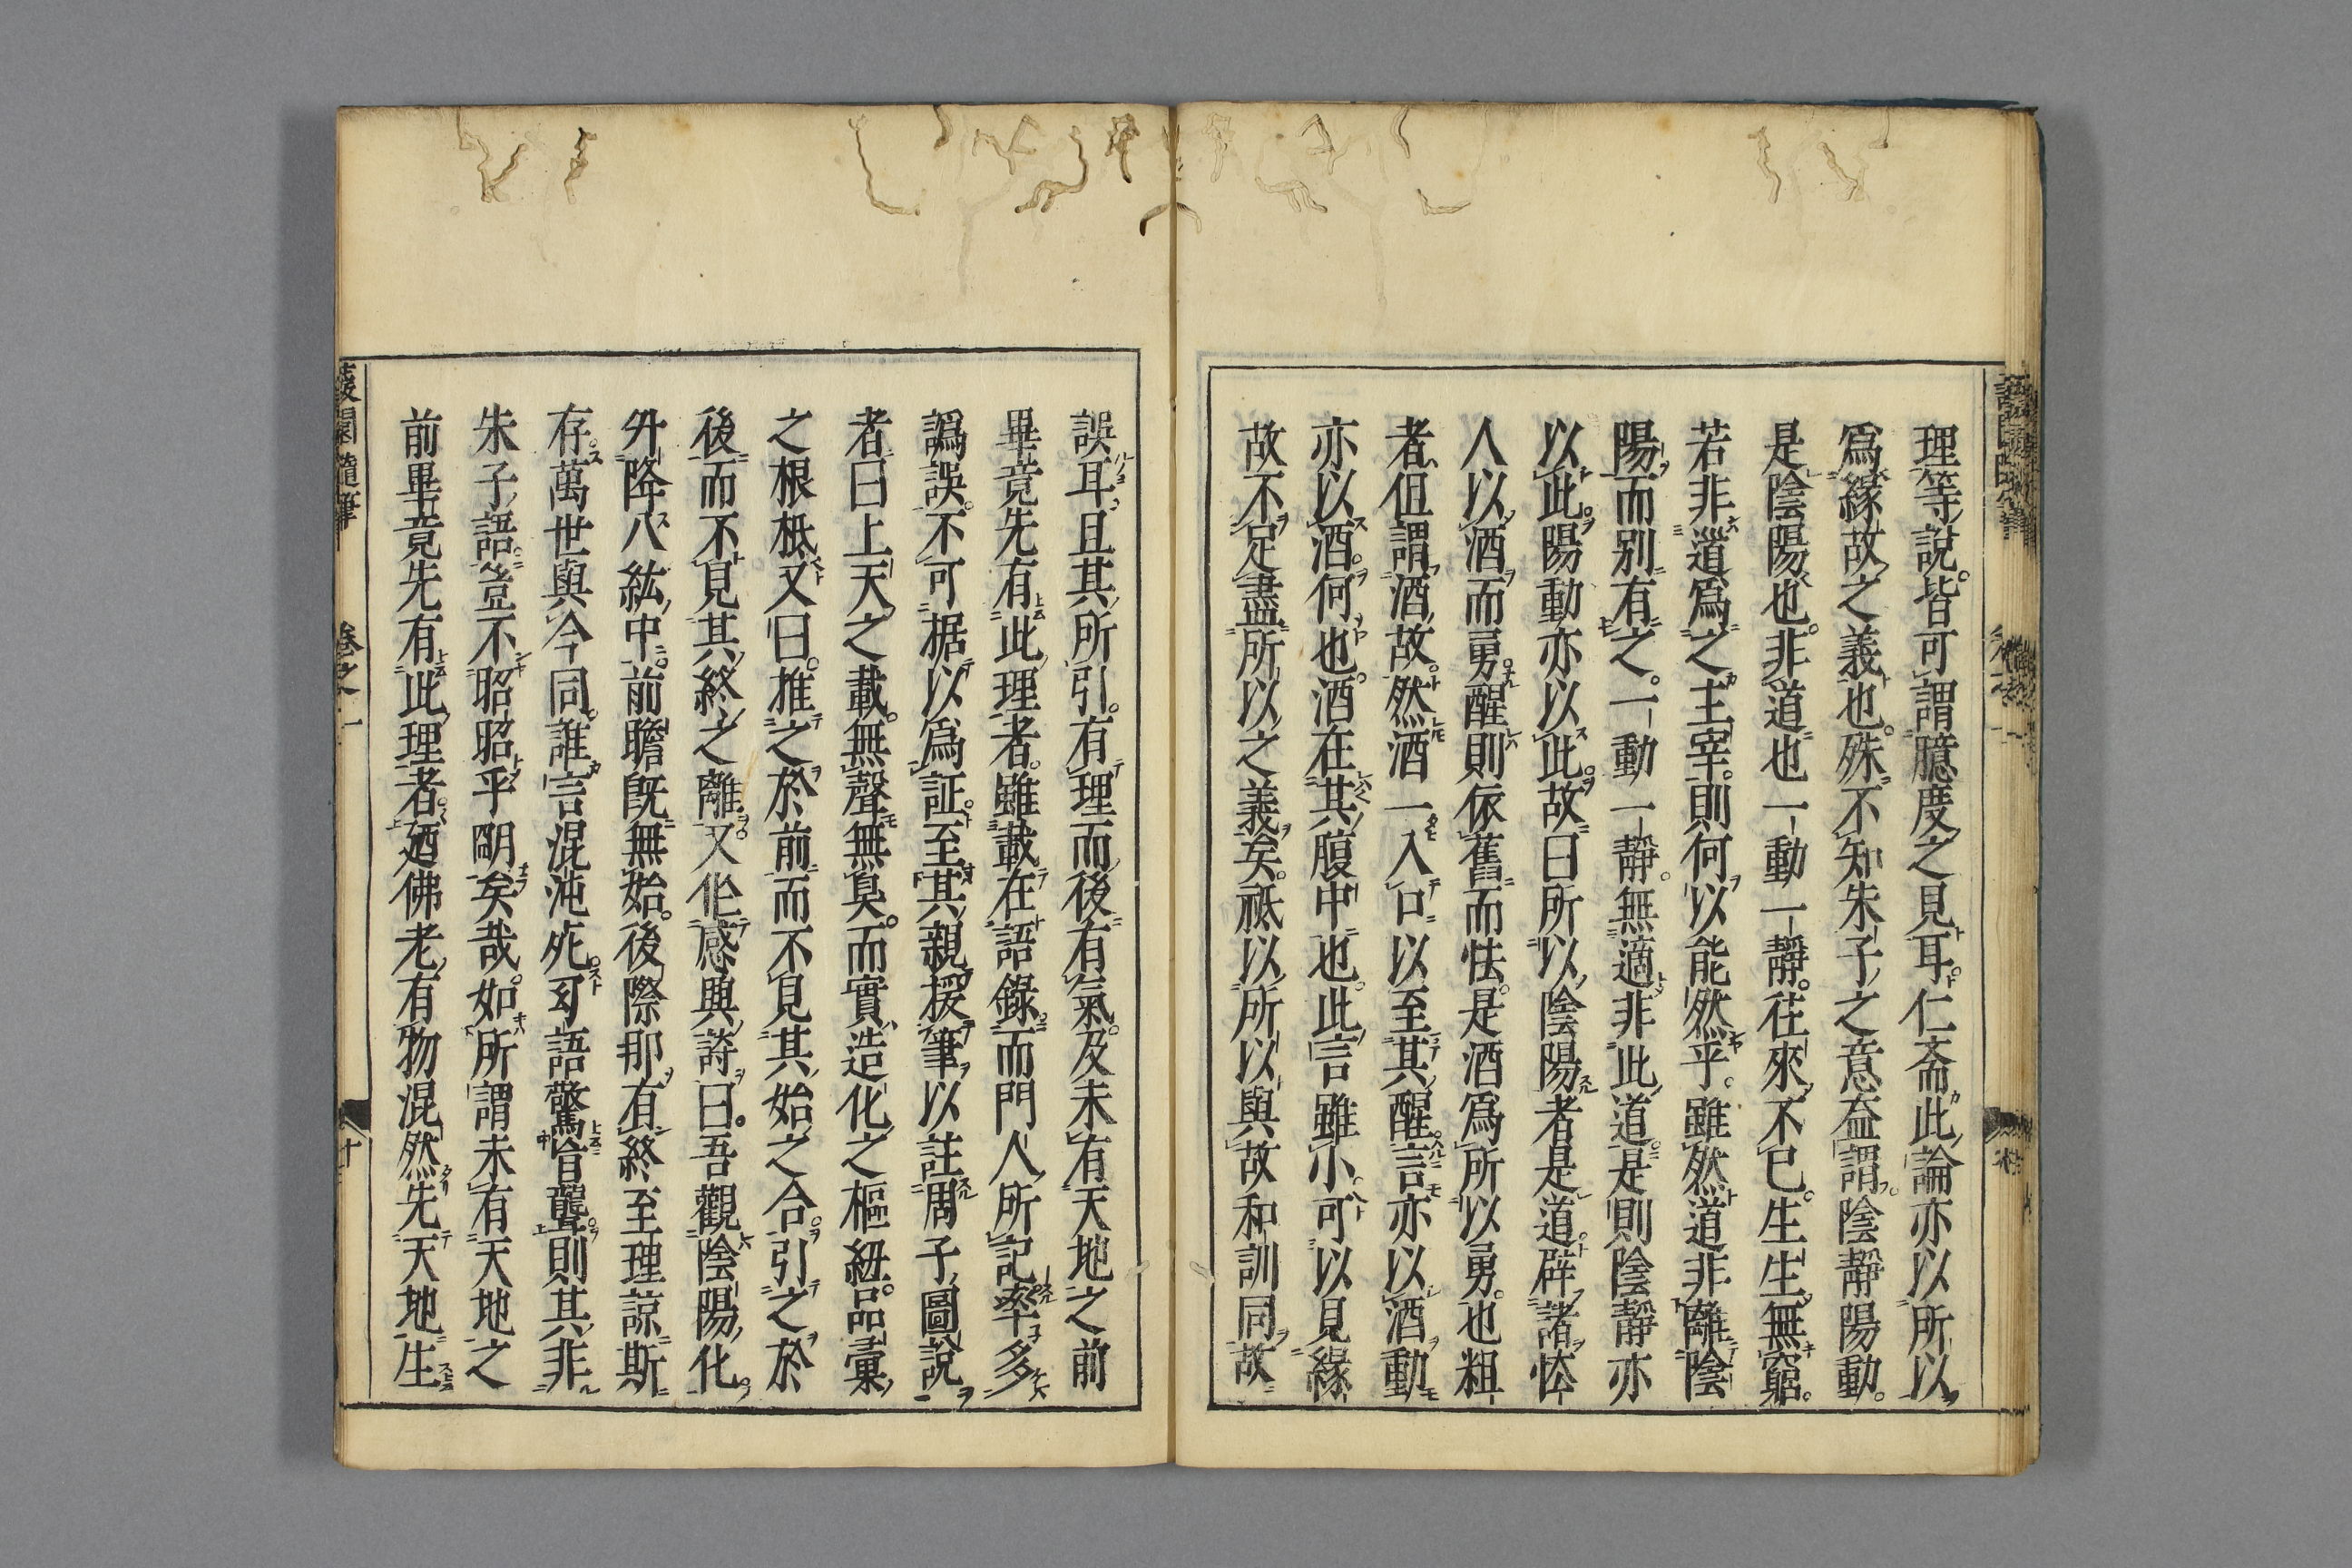 理等説。皆可謂臆度之見耳。仁斎此論亦以所以
爲縁故之義也。殊不知朱子之意益謂陰靜陽動。
是陰陽也。非道也一動一靜。往來不已。生生無窮。
若非道爲之主宰。則何以能然乎。雖然道非離陰
陽而別有之。一動一靜。無適非此道。是則陰靜亦
以此。陽動亦以此。故曰所以陰陽者是道。辟諸怯
人以酒而勇。醒則依舊而怯。是酒爲所以勇。也粗
者但謂酒故。然酒一入口以至其醒。言亦以酒動
亦以酒。何也。酒在其腹中也。此言雖小。可以見縁
故不足盡所以之義矣。祗以所以與故和訓同故
誤耳且其所引。有理而後有氣。及未有天地之前
畢竟先有此理者。雖載在語錄。而門人所記率多
譌誤。不可据以爲証。至其親援筆以註周子圖說
者曰上天之載。無聲無臭。而實造化之樞紐。品彙
之根柢又曰。推之於前而不見其始之合。引之於
後而不見其終之離。又作感興詩曰。吾觀陰陽化。
升降八紘中。前瞻旣無始。後際那有終至理諒斯
存。萬世與今同。誰言混沌死。幻語驚盲聾。則其非
朱子語。豈不昭昭乎明矣哉。如所謂未有天地之
前畢竟先有此理者。廼佛老有物混然先天地生
蘐園隨筆 卷之一 十